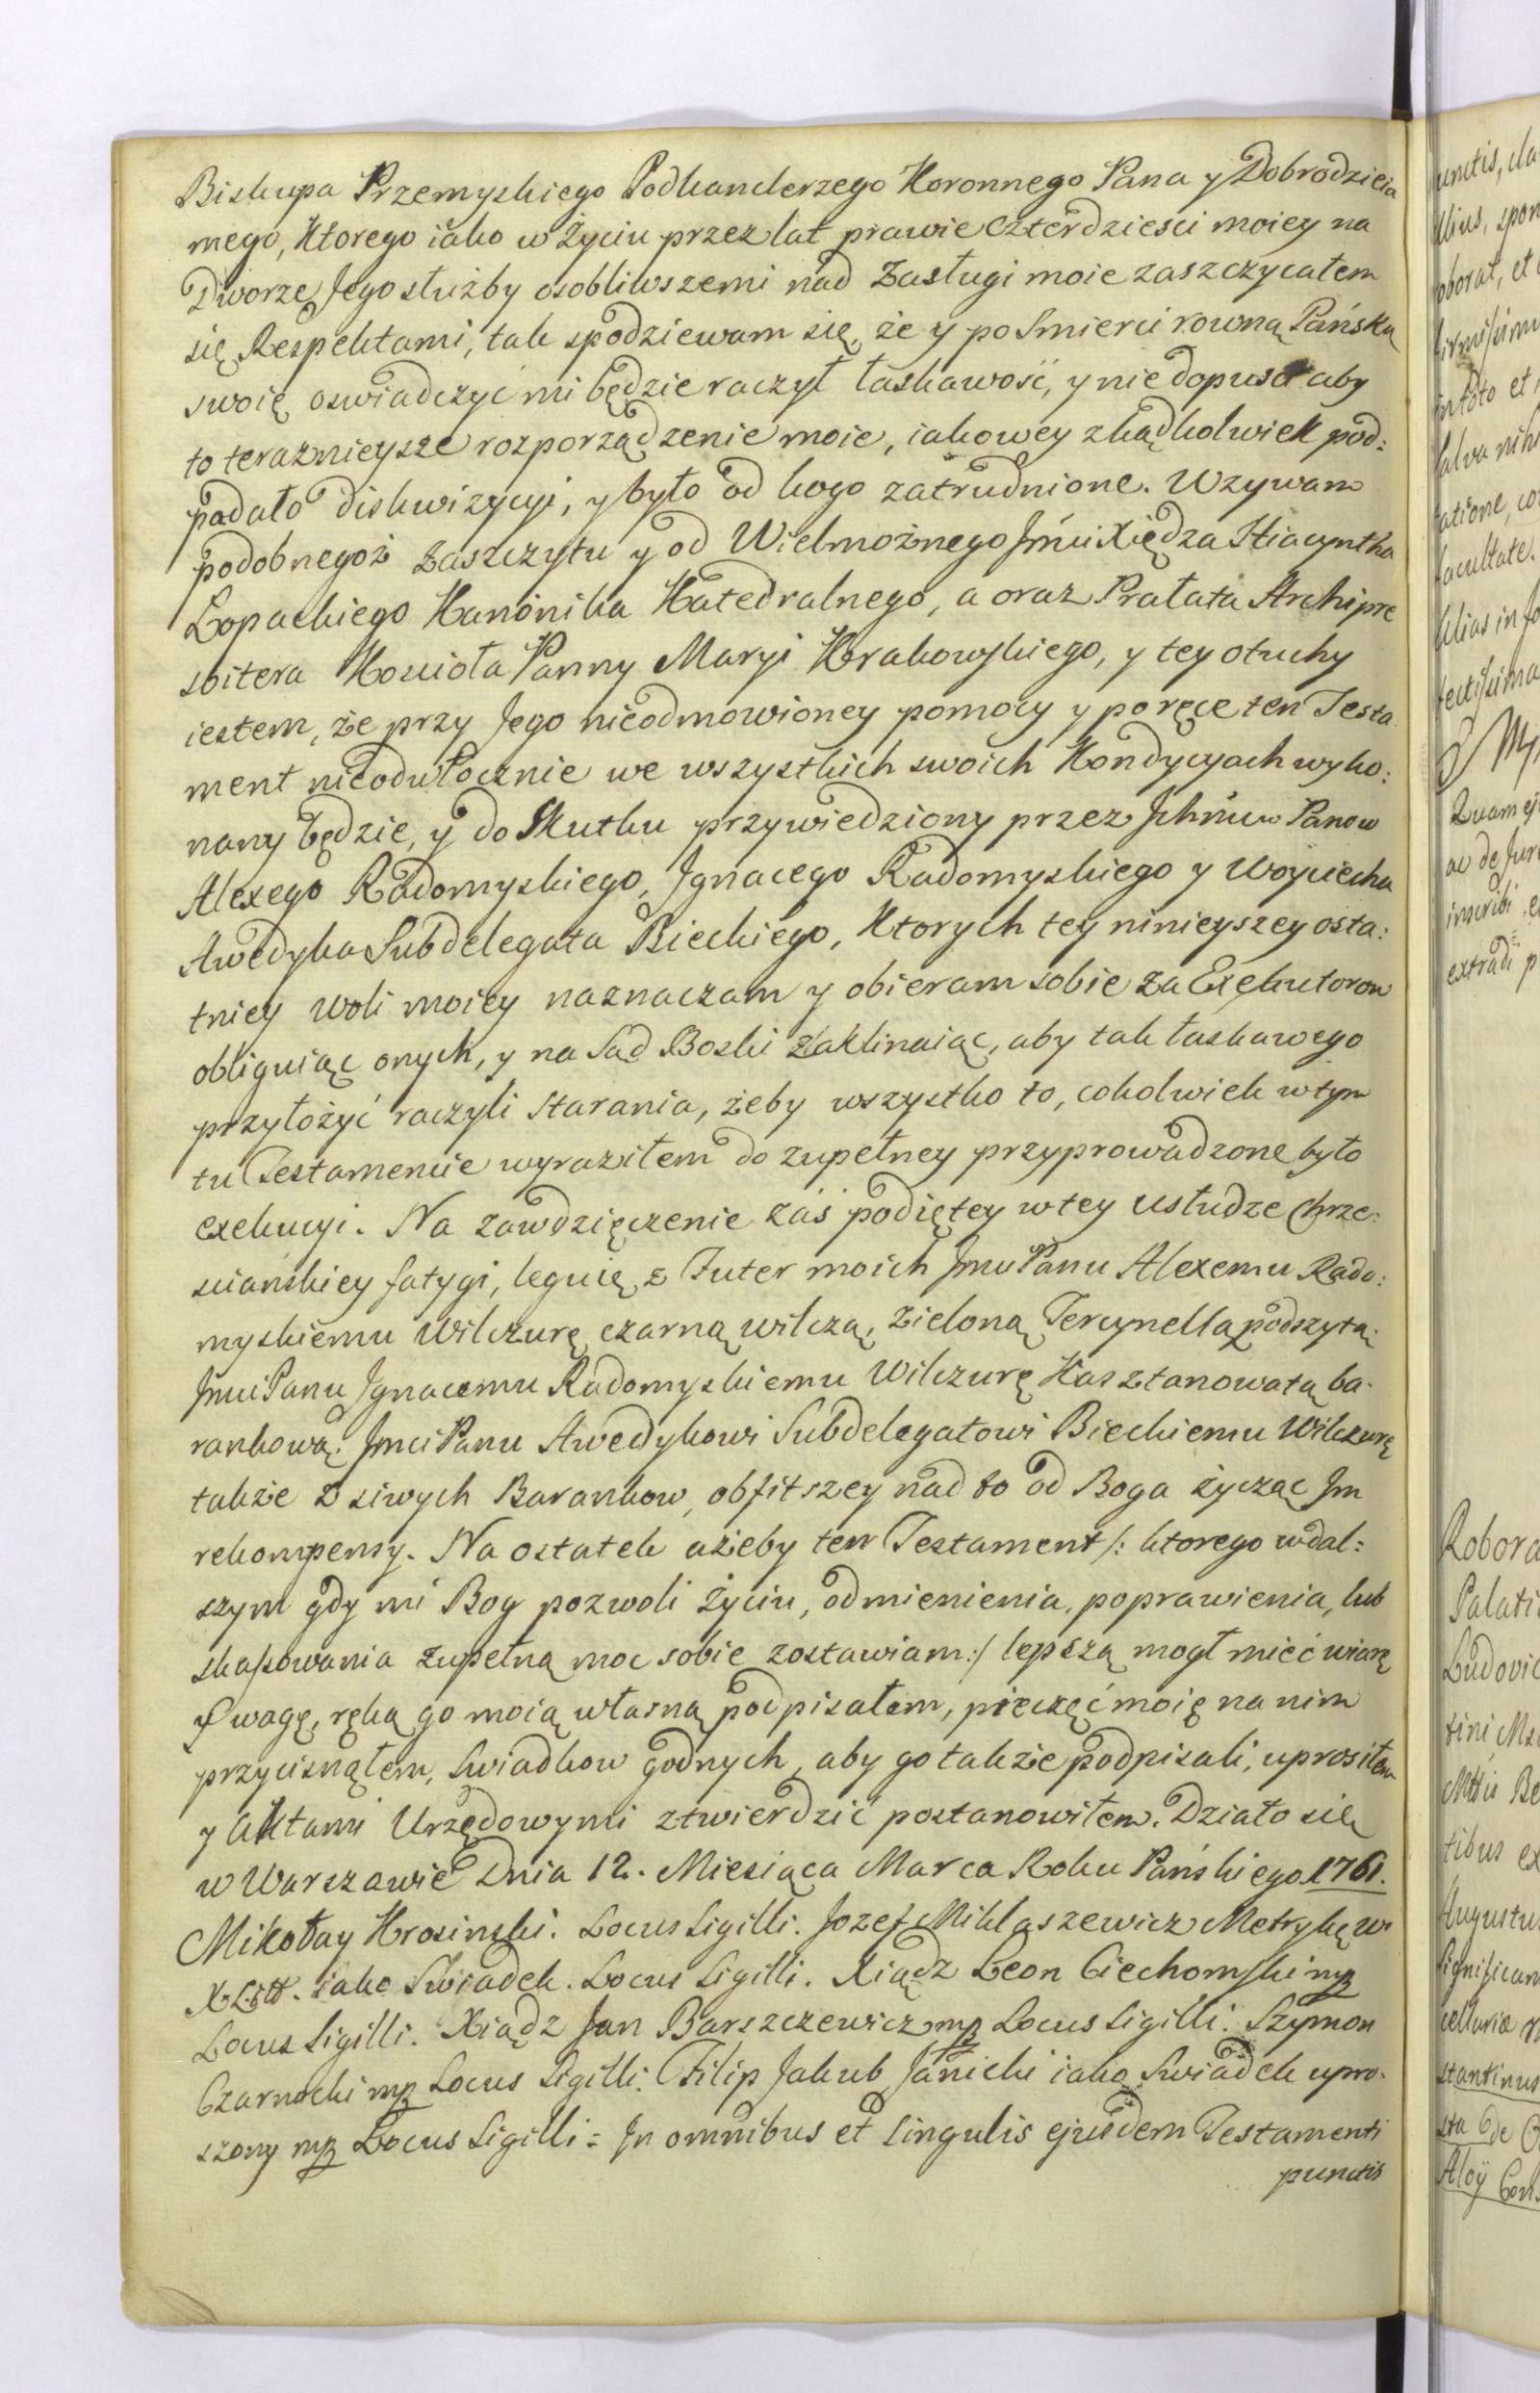 Biskupa Przemyskiego Podkanclerzego Koronnego Pana y Dobrodzieia
mego, Ktorego iako w Życiu przez lat prawie czterdzieści moiey na
Dworze Jego służby osobliwszemi nad Zasługi moie zaszczycałem
się Respektami, tak spodziewam się, że y po Smierci rowną Pańską
swoię oswiadczyć mi będzie raczył łaskawość, y nie dopuści aby
to teraznieysze rozporządzenie moie, iakowey zkądkolwiek pod:
padało diskwizycyi, y było od kogo zatrudnione. Wzywam
podobnegoż Zaszczytu y od Wielmożnego Jmci Xiędza Hiacyntha
Łopackiego Kanonika Katedralnego, a oraz Prałata Archipre
sbitera Kościoła Panny Maryi Krakowskiego, y tey otuchy
iestem, że przy Jego nieodmowioney pomocy y poręce ten Testa
ment nieodwłocznie we wszystkich swoich Kondycyach wyko:
nany będzie, y do Skutku przywiedziony przez Jchmciow Panow
Alexego Radomyskiego, Jgnacego Radomyskiego y Woyciecha
Awedyka Subdelegata Bieckiego, Ktorych tey ninieyszey osta:
tniey woli moiey naznaczam y obieram sobie za Exekutorow
obliguiąc onych, y na Sąd Boski zaklinaiąc, aby tak łaskawego
przyłożyć raczyli starania, żeby wszystko to, cokolwiek w tym
tu Testamencie wyraziłem do zupełney przyprowadzone było
exekucyi. Na zawdzięczenie zaś podiętey w tey usłudze Chrze:
sciańskiey fatygi, leguię z Futer moich Jmci Panu Alexemu Rado:
myskiemu Wilczurę czarną wilczą, zieloną Tercynellą podszytą;
Jmci Panu Jgnacemu Radomyskiemu Wilczurę Kasztanowatą ba-
rankową; Jmci Panu Awedykowi Subdelegatowi Bieckiemu Wilczurę
także z siwych Barankow, obfitszey nad to od Boga życząc Jm
rekompensy. Na ostatek ażeby ten Testament /: ktorego w dal:
szym gdy mi Bog pozwoli Życiu, odmienienia, poprawienia, lub
skassowania zupełną moc sobie zostawiam :/ lepszą mogł mieć wiarę
y wagę, ręką go moią własną podpisałem, pieczęć moię na nim
przycisnąłem, Swiadkow godnych, aby go także podpisali, uprosiłem
y Aktami Urzędowymi ztwierdzić postanowiłem. Działo się
w Warszawie Dnia 12. Miesiąca Marca Roku Pańskiego 1761.
Mikołay Krosinski. Locus Sigilli. Jozef Miklaszewicz Metrykę w.
X. Litt. iako Swiadek. Locus Sigilli. Xiądz Leon Ciechomski mp
Locus Sigilli. Xiądz Jan Barszczewicz mp Locus Sigilli. Szymon
Czarnocki mp Locus Sigilli. Filip Jakub Janicki iako Swiadek upro-
szony mp Locus Sigilli = Jn omnibus et singulis ejusdem Testamenti
punctis